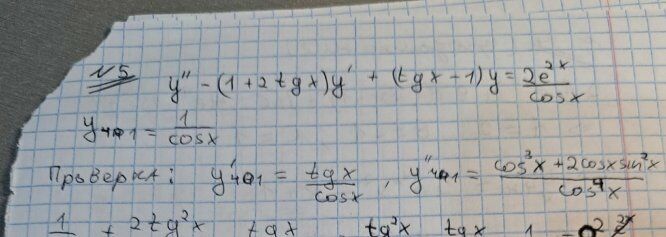 №5 y'' - (1+2tgx)y' + (tgx-1)y = 2e^{2x}/cosx
yчо1 = 1/cosx
Проверка: y'чо1 = tgx/cosx, y''чо1 = (cos³x + 2cosx sin²x)/cos⁴x
1 + 2tg²x tgx tg²x tgx 1